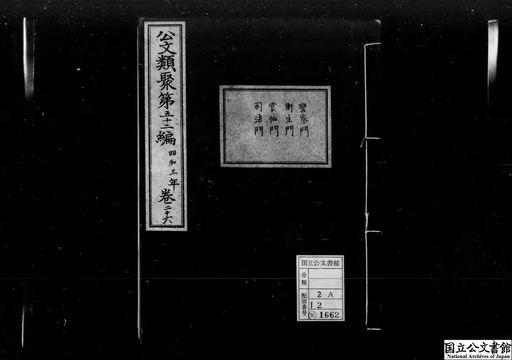 公文類聚第五十二編 昭和三年 卷二十六
警察門
衛生門
賞恤門
司法門
国立公文書館
分類
配架番号
2A
12
類1662
国立公文書館
National Archives of Japan